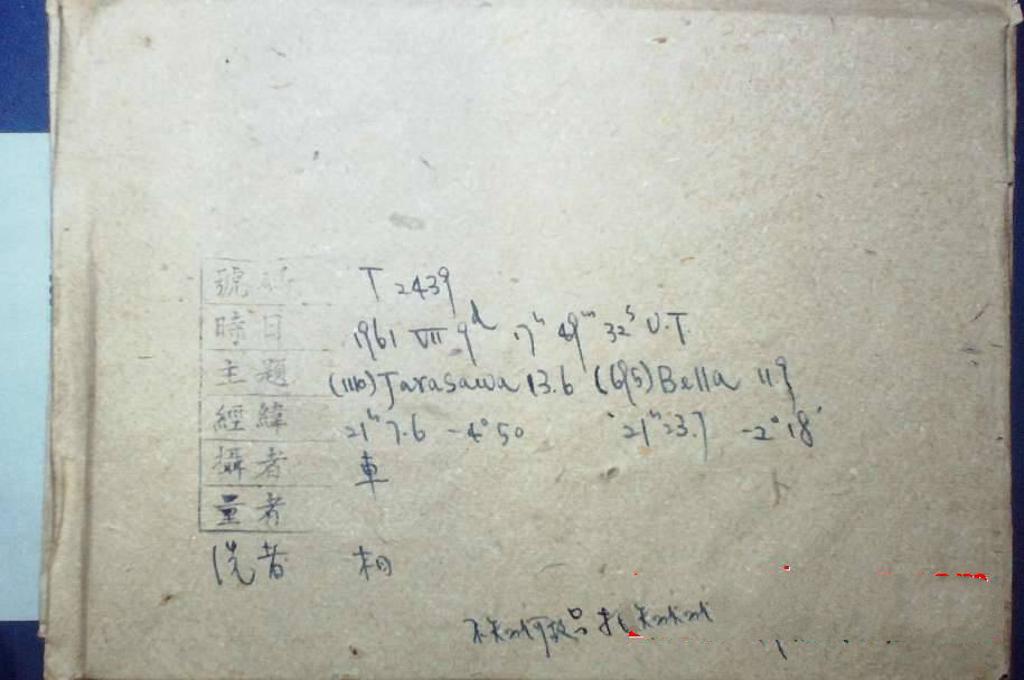 號 T 2439
時日 1961 VII 9ᵈ 17ʰ 49ᵐ 32ˢ U.T.
主題 (1110) Jarasawa 13.6 (695) Bella 11.9
經緯 21ʰ 7.6 -4°50 21ʰ 23.7 -2°18'
攝者 車
量者
洗者 相